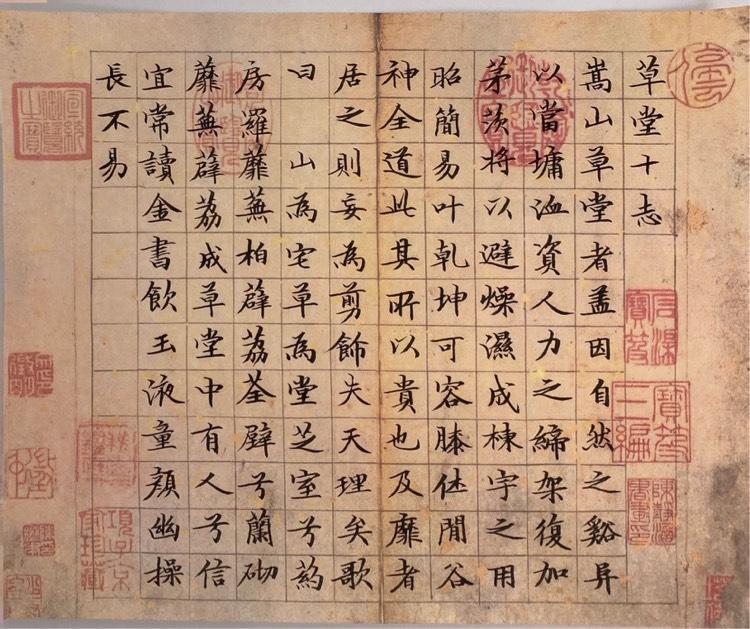 草堂十志
嵩山草堂者盖因自然之谿异
以當墉洫資人力之締架復加
茅茨將以避燥濕成棟宇之用
昭簡易叶乾坤可容膝休閒谷
神全道此其所以貴也及靡者
居之則妄為剪飾失天理矣歌
曰山為宅草為堂芝室兮葯
房羅蘼蕪柏薜荔荃壁兮蘭砌
蘼蕪薜荔成草堂中有人兮信
宜常讀金書飲玉液童顏幽操
長不易
石渠寶笈
寶笈三編
宣統御覽之寶
項子京家珍藏